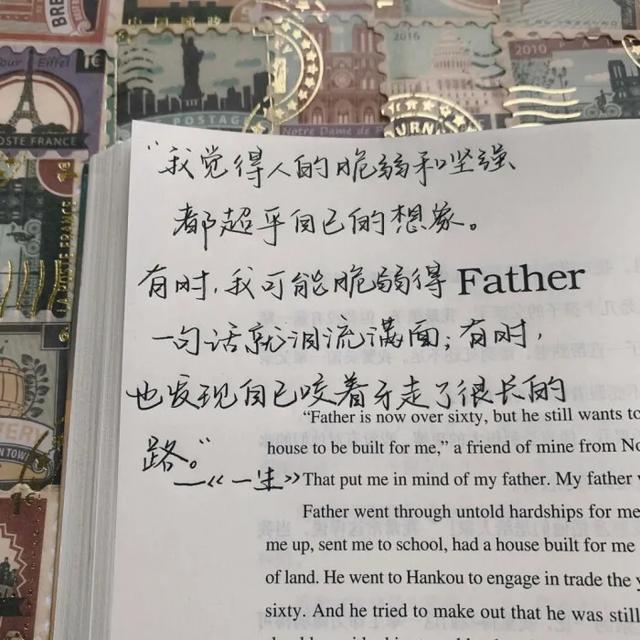 BRE
中国邮政
2016
2010
Tour Eiffel
1€
POSTE FRANCE
POSTAGE
Notre Dame de
URN
LA POSTE FRANCE
TERY
N TOWN
1€
“我觉得人的脆弱和坚强
都超乎自己的想象。
有时,我可能脆弱得
Father
一句话就泪流满面;有时,
也发现自己咬着牙走了很长的
路。”
—《一生》
“Father is now over sixty, but he still wants to
house to be built for me,” a friend of mine from No
That put me in mind of my father. My father
Father went through untold hardships for me
me up, sent me to school, had a house built for me
of land. He went to Hankou to engage in trade the y
sixty. And he tried to make out that he was still